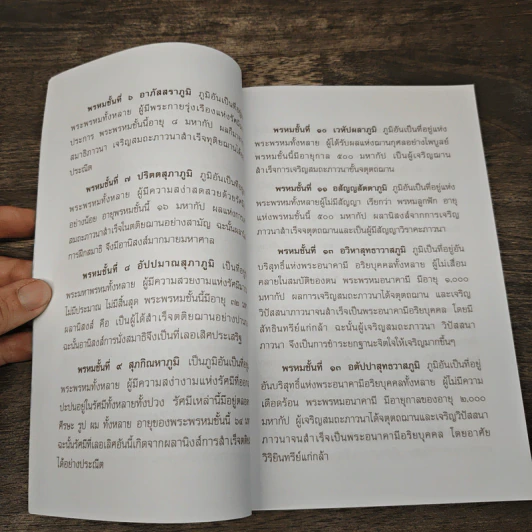 พรหมชั้นที่ ๖ อาภัสสราภูมิ ภูมิอันเป็นที่อยู่
พระพรหมทั้งหลาย ผู้มีพระกายรุ่งเรืองแห่งรัศมี
ประการ พระพรหมชั้นนี้อายุ ๘ มหากัป ผลที่
สมาธิภาวนา เจริญสมถะภาวนาสำเร็จทุติยฌาน
ประณีต
พรหมชั้นที่ ๗ ปริตตสุภาภูมิ ภูมิอันเป็นที่อยู่
พระพรหมทั้งหลาย ผู้มีความสง่าสดสวยด้วยรัศมี
อย่างน้อย อายุพรหมชั้นนี้ ๑๖ มหากัป ผลแห่งการ
สมถะภาวนาสำเร็จในตติยฌานอย่างสามัญ ฉะนั้น
การฝึกสมาธิ จึงมีอานิสงส์มากมายมหาศาล
พรหมชั้นที่ ๘ อัปปมาณสุภาภูมิ เป็นที่อยู่
พระมหาพรหมทั้งหลาย ผู้มีความสวยงามแห่งรัศมี
ไม่มีประมาณ ไม่มีสิ้นสุด พระพรหมชั้นนี้มีอายุ ๓๒
ผลอานิสงส์ คือ เป็นผู้ได้สำเร็จตติยฌานอย่าง
ฉะนั้นอานิสงส์การนั่งสมาธิจึงเป็นที่เลอเลิศประเสริฐ
พรหมชั้นที่ ๙ สุภกิณหาภูมิ เป็นภูมิอันเป็นที่อยู่
พระพรหมทั้งหลาย ผู้มีความสง่างามแห่งรัศมีที่ออก
ปะปนอยู่ในรัศมีทั้งหลายทั้งปวง รัศมีเหล่านี้มีอยู่ตลอด
ศีรษะ รูป ผม ทั้งหลาย อายุของพระพรหมชั้นนี้ ๖๔
ฉะนั้นรัศมีที่เลอเลิศอันนี้เกิดจากผลอานิสงส์การสำเร็จ
ได้อย่างประณีต
พรหมชั้นที่ ๑๐ เวหัปผลาภูมิ ภูมิอันเป็นที่อยู่แห่ง
พระพรหมทั้งหลาย ผู้ได้รับผลแห่งฌานกุศลอย่างไพบูลย์
พรหมชั้นนี้มีอายุกาล ๕๐๐ มหากัป เป็นผู้เจริญฌาน
สำเร็จการเจริญสมถะภาวนาชั้นจตุตถฌาน
พรหมชั้นที่ ๑๑ อสัญญสัตตาภูมิ ภูมิอันเป็นที่อยู่แห่ง
พระพรหมทั้งหลายผู้ไม่มีสัญญา เรียกว่า พรหมลูกฟัก อายุ
แห่งพรหมชั้นนี้ ๕๐๐ มหากัป ผลานิสงส์จากการเจริญ
ภาวนาสำเร็จจตุตถฌานและเป็นผู้มีสัญญาวิราคะภาวนา
พรหมชั้นที่ ๑๓ อวิหาสุทธาวาสภูมิ ภูมิเป็นที่อยู่อัน
บริสุทธิ์แห่งพระอนาคามี อริยบุคคลทั้งหลาย ผู้ไม่เสื่อม
คลายในสมบัติของตน พระพรหมอนาคามี มีอายุ ๑,๐๐๐
มหากัป ผลการเจริญสมถะภาวนาได้จตุตถฌาน และเจริญ
วิปัสสนาภาวนาจนสำเร็จเป็นพระอนาคามีอริยบุคคล โดยมี
สัทธินทรีย์แก่กล้า ฉะนั้นผู้เจริญสมถะภาวนา วิปัสสนา
ภาวนา จึงเป็นการชำระยกฐานะจิตใจให้เจริญมากขึ้นๆ
พรหมชั้นที่ ๑๓ อตัปปาสุทธาวาสภูมิ ภูมิอันเป็นที่อยู่
อันบริสุทธิ์แห่งพระอนาคามีอริยบุคคลทั้งหลาย ผู้ไม่มีความ
เดือดร้อน พระพรหมอนาคามี มีอายุกาลของตน ๒,๐๐๐
มหากัป ผู้เจริญสมถะภาวนาได้จตุตถฌานและเจริญวิปัสสนา
ภาวนาจนสำเร็จเป็นพระอนาคามีอริยบุคคล โดยอาศัย
วิริยินทรีย์แก่กล้า